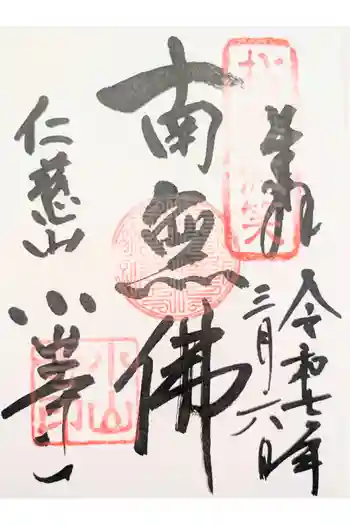 奉拝
令和七年
三月六日
南無佛
仁慈山